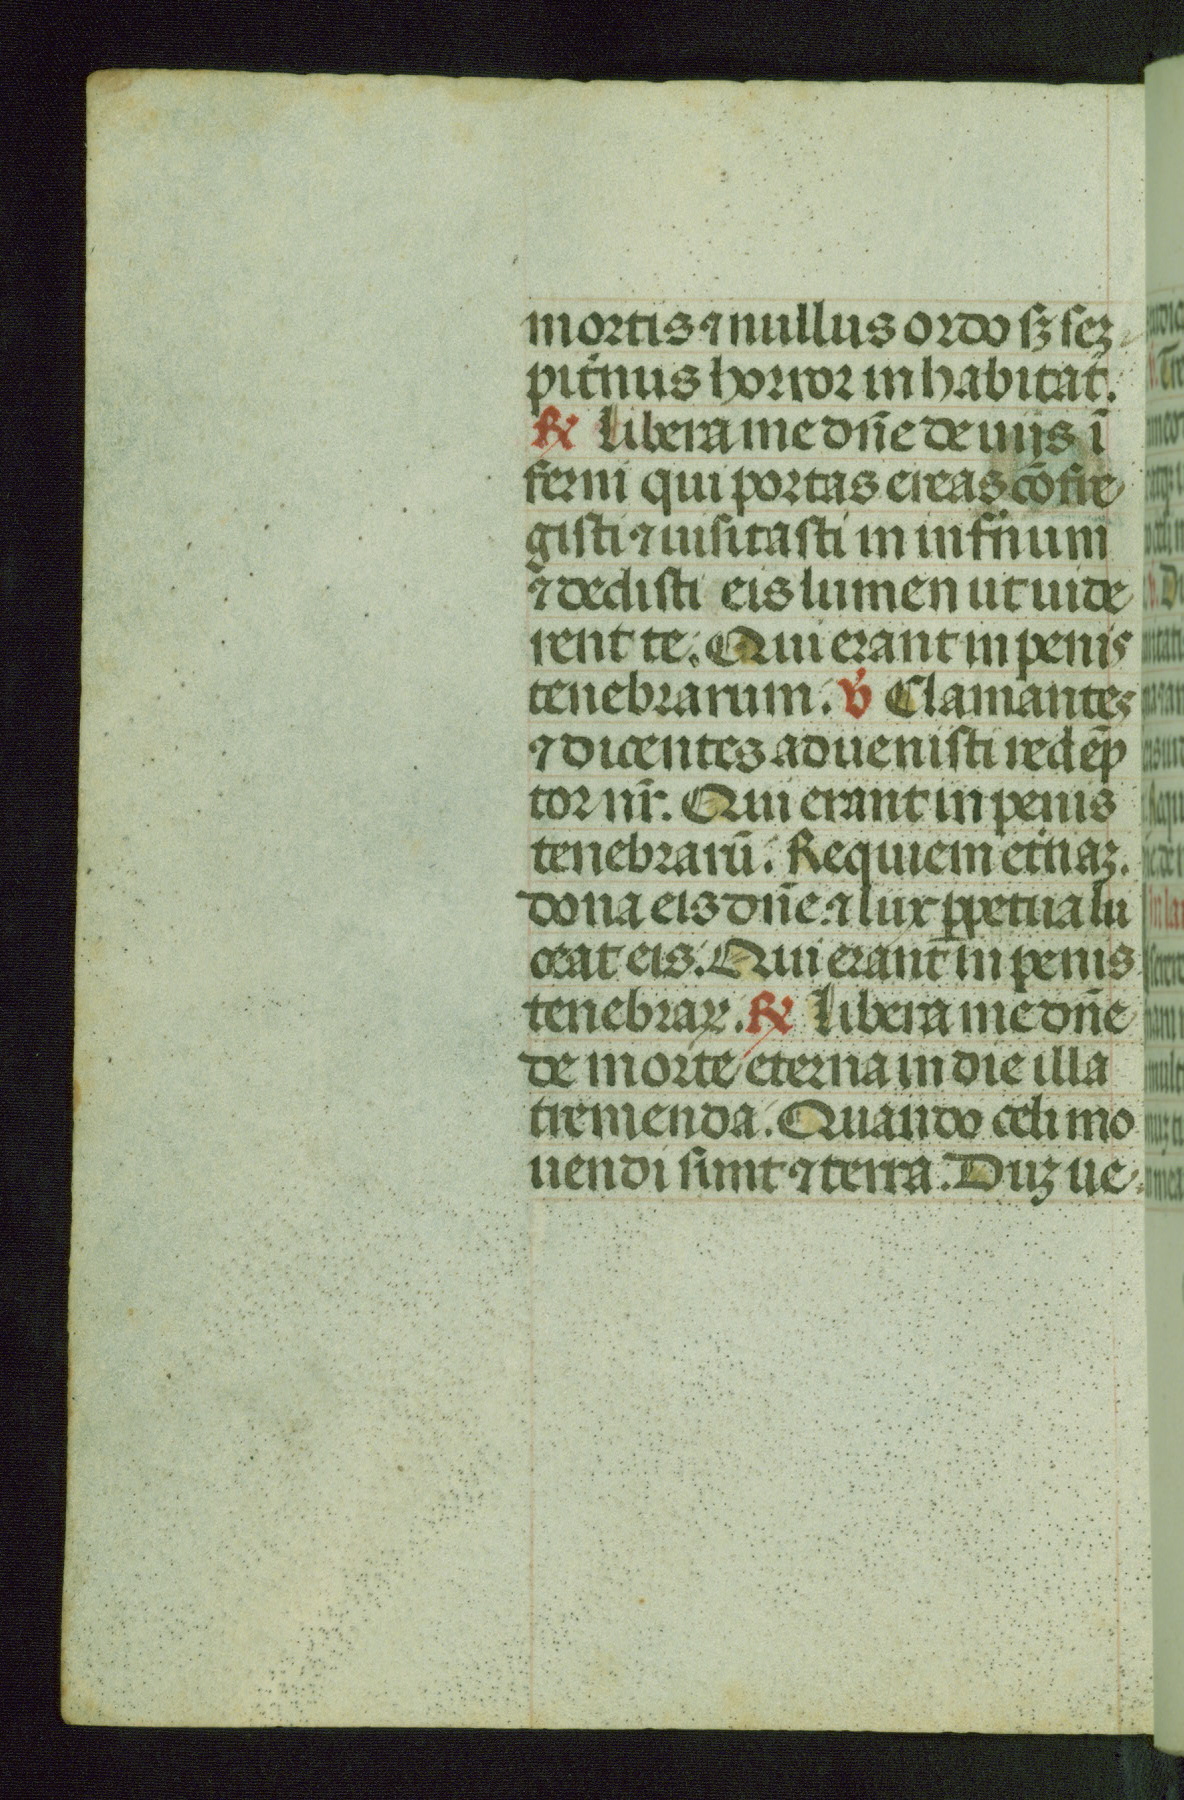 mortis ⁊ nullus ordo sꝫ seꝫ
pit͛nus horror inhabitat.
℟ Libera me dn̄e de uijs ī
ferni qui portas ereas cōfre
gisti ⁊ uisitasti in inf͛num
⁊ dedisti eis lumen ut uide
rent te. Qui erant in penis
tenebrarum. ℣ Clamantes
⁊ dicentes aduenisti redēp
tor nr̄. Qui erant in penis
tenebrarū. Requiem et͛naꝫ.
dona eis dn̄e ⁊ lux ꝑpetua lu
ceat eis. Qui erant in penis
tenebraꝝ. ℟ Libera me dn̄e
de morte eterna in die illa
tremenda. Quando celi mo
uendi sunt ⁊ terra. Duꝫ ue